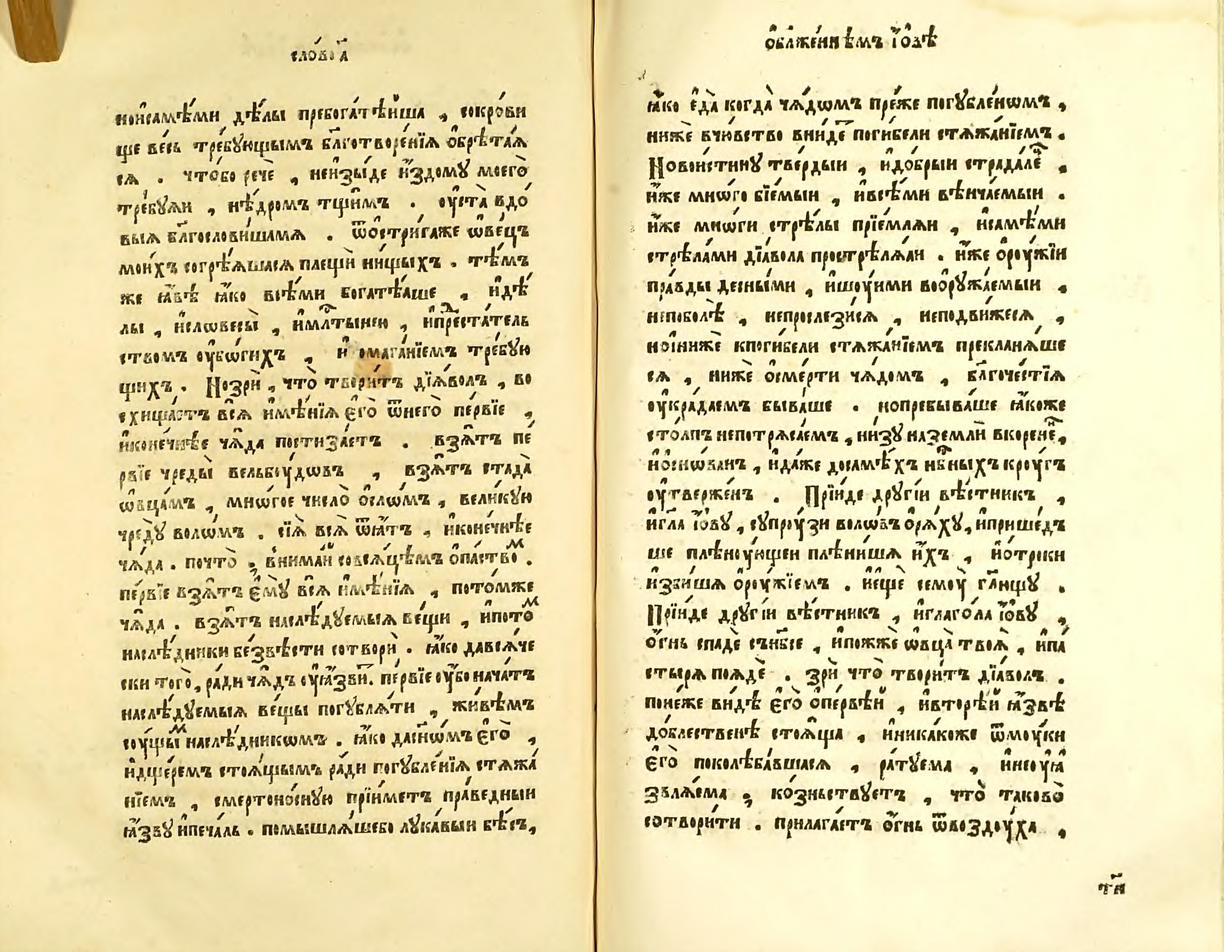 сло́во а҃
ноисамѣ́ми дѣ́лы пребога́тѣйша , сокро́ви
ще весь тре́бующымъ благотворе́нїѧ ѻбрѣта́ѧ
сѧ . что́бо речѐ , неизы́де издо́му моего̀
тре́буѧи , нѣ́дромъ тщи́мъ . оуста̀ вдо
выѧ благослови́шамѧ . ѿостри́гаже ѡве́цъ
мои́хъ согрѣ́ѧшасѧ плещѝ ни́щыхъ . тѣ́мъ
же ꙗ҆́вѣ ꙗ҆́ко всѣ́ми богатѣ́аше , идѣ́
лы , исловесы̀ , имлⷭ҇тынею , ипреⷣста́тель
ствомъ оубо́гихъ , и омага́нїемъ тре́бую
щихъ . Нозрѝ , что̀ твори́тъ дїѧ́волъ , во
схища́етъ всѧ̀ имѣ́нїѧ є҆гѡ̀ ѿнегѡ̀ пе́рвїе ,
иконе́чнѣе ча́да постиза́етъ . взѧ́тъ пе́
рвїе чреды̀ вельбоу́довъ , взѧ́тъ стада̀
ѡвца́мъ , мно́гое число̀ ѻсло́мъ , вели́кую
чреду̀ воло́мъ . сїѧ̀ всѧ̀ ѿѧ́тъ , иконе́чнѣе
ча́да . почто̀ , внима́й совсѧ́цѣмъ ѻпа́ствоⷨ .
пе́рвїе взѧ́тъ є҆му̀ всѧ̀ имѣ́нїѧ , пото́мже
ча́да . взѧ́тъ наслѣ́дуемыѧ ве́щи , ипото́ⷨ
наслѣ́дники безвѣ́сти сотворѝ . ꙗ҆́ко давсѧ́че
ски того̀ , ра́ди ча́дъ оуѧ́звитъ . пе́рвїе оу́бо нача́тъ
наслѣ́дуемыѧ ве́щы погублѧ́ти , живѣ́мъ
соу́щыⷨ наслѣ́дникомъ . ꙗ҆́ко дасно́мъ є҆гѡ̀ ,
идще́ремъ стоѧ́щымъ ра́ди погубле́нїѧ стѧжа́
нїемъ , смертоно́сную прїи́метъ пра́ведный
ꙗ҆́зву ипеча́ль . помышлѧ́шебо лука́вый бѣ́съ ,
ѻблаже́ннѣмъ І҆ѡ́вѣ
ꙗ҆́ко є҆да̀ когда̀ ча́домъ пре́же погубле́номъ ,
ниже́ вчю́вство вни́деⷮ поги́бели стѧжа́нїемъ .
Новои́стину тве́рдый , идо́брый страда́леⷰ҇ ,
и҆́же мно́го бїе́мый , ивсѣ́ми вѣнча́емый .
и҆́же мно́ги стрѣ́лы прїе́млѧи , исамѣ́ми
стрѣла́ми дїа́вола прострѣлѧ́ѧи . и҆́же ѻроу́жїи
пра́вды десны́ми , ишоу́ими вооружа́емый ,
непоболѣ̀ , непрослези́сѧ , неподви́жесѧ ,
нониже́ кпоги́бели стѧжа́нїемъ преклонѧ́ше
сѧ , ниже́ ѻсме́рти ча́домъ , благоче́стїѧ
оукрада́емъ быва́ше . нопребыва́ше ꙗ҆́коже
сто́лпъ непотрѧса́емъ , ни́зу наземлѝ вкоре́неⷩ҇ ,
иѻсно́ванъ , ида́же досамѣ́хъ нбⷭ҇ныхъ кроу́гъ
оутверже́нъ . Прїи́де други́й вѣ́стникъ ,
игла І҆ѡ́ву , супроу́зи воло́въ ѻрѧ́ху , иприше́дъ
ше плѣну́ющеи плѣни́шѧ и҆́хъ , иѻ́троки
изби́шѧ ѻроу́жїемъ . иещѐ семоу̀ гл҃ющу .
Прїи́де други́й вѣ́стникъ , иглаго́ла І҆ѡ́ву ,
ѻ҆́гнь спадѐ снб҃се , ипожжѐ ѡ́вца твоѧ̀ , ипа́
стырѧ поѧдѐ . зрѝ что̀ твори́тъ дїа́волъ .
поне́же ви́дѣ є҆гѡ̀ ѻпе́рвѣй , ивторѣ́й ꙗ҆́звѣ
до́блественѣ стоѧ́ща , иника́коже ѿмоу́ки
є҆гѡ̀ поколѣба́вшасѧ , рату́ема , инеоуѧ́
звлѧ́ема , ко́зньствуетъ , что̀ таково̀
сотвори́ти . прилага́етъ ѻ҆́гнь ѿвозду́ха ,
тїи